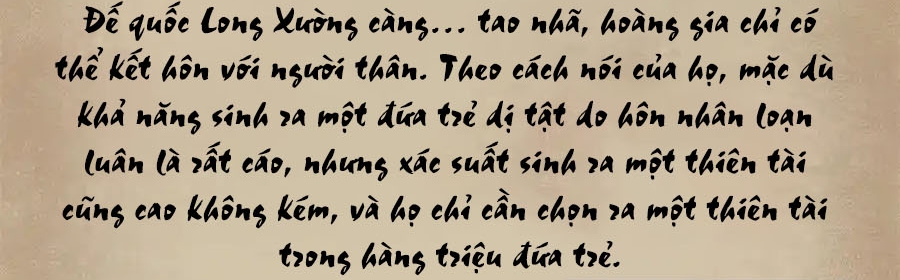 Đế quốc Long Xường càng... tao nhã, hoàng gia chỉ có
thể kết hôn với người thân. Theo cách nói của họ, mặc dù
khả năng sinh ra một đứa trẻ dị tật do hôn nhân loạn
luân là rất cáo, nhưng xác suất sinh ra một thiên tài
cũng cao không kém, và họ chỉ cần chọn ra một thiên tài
trong hàng triệu đứa trẻ.